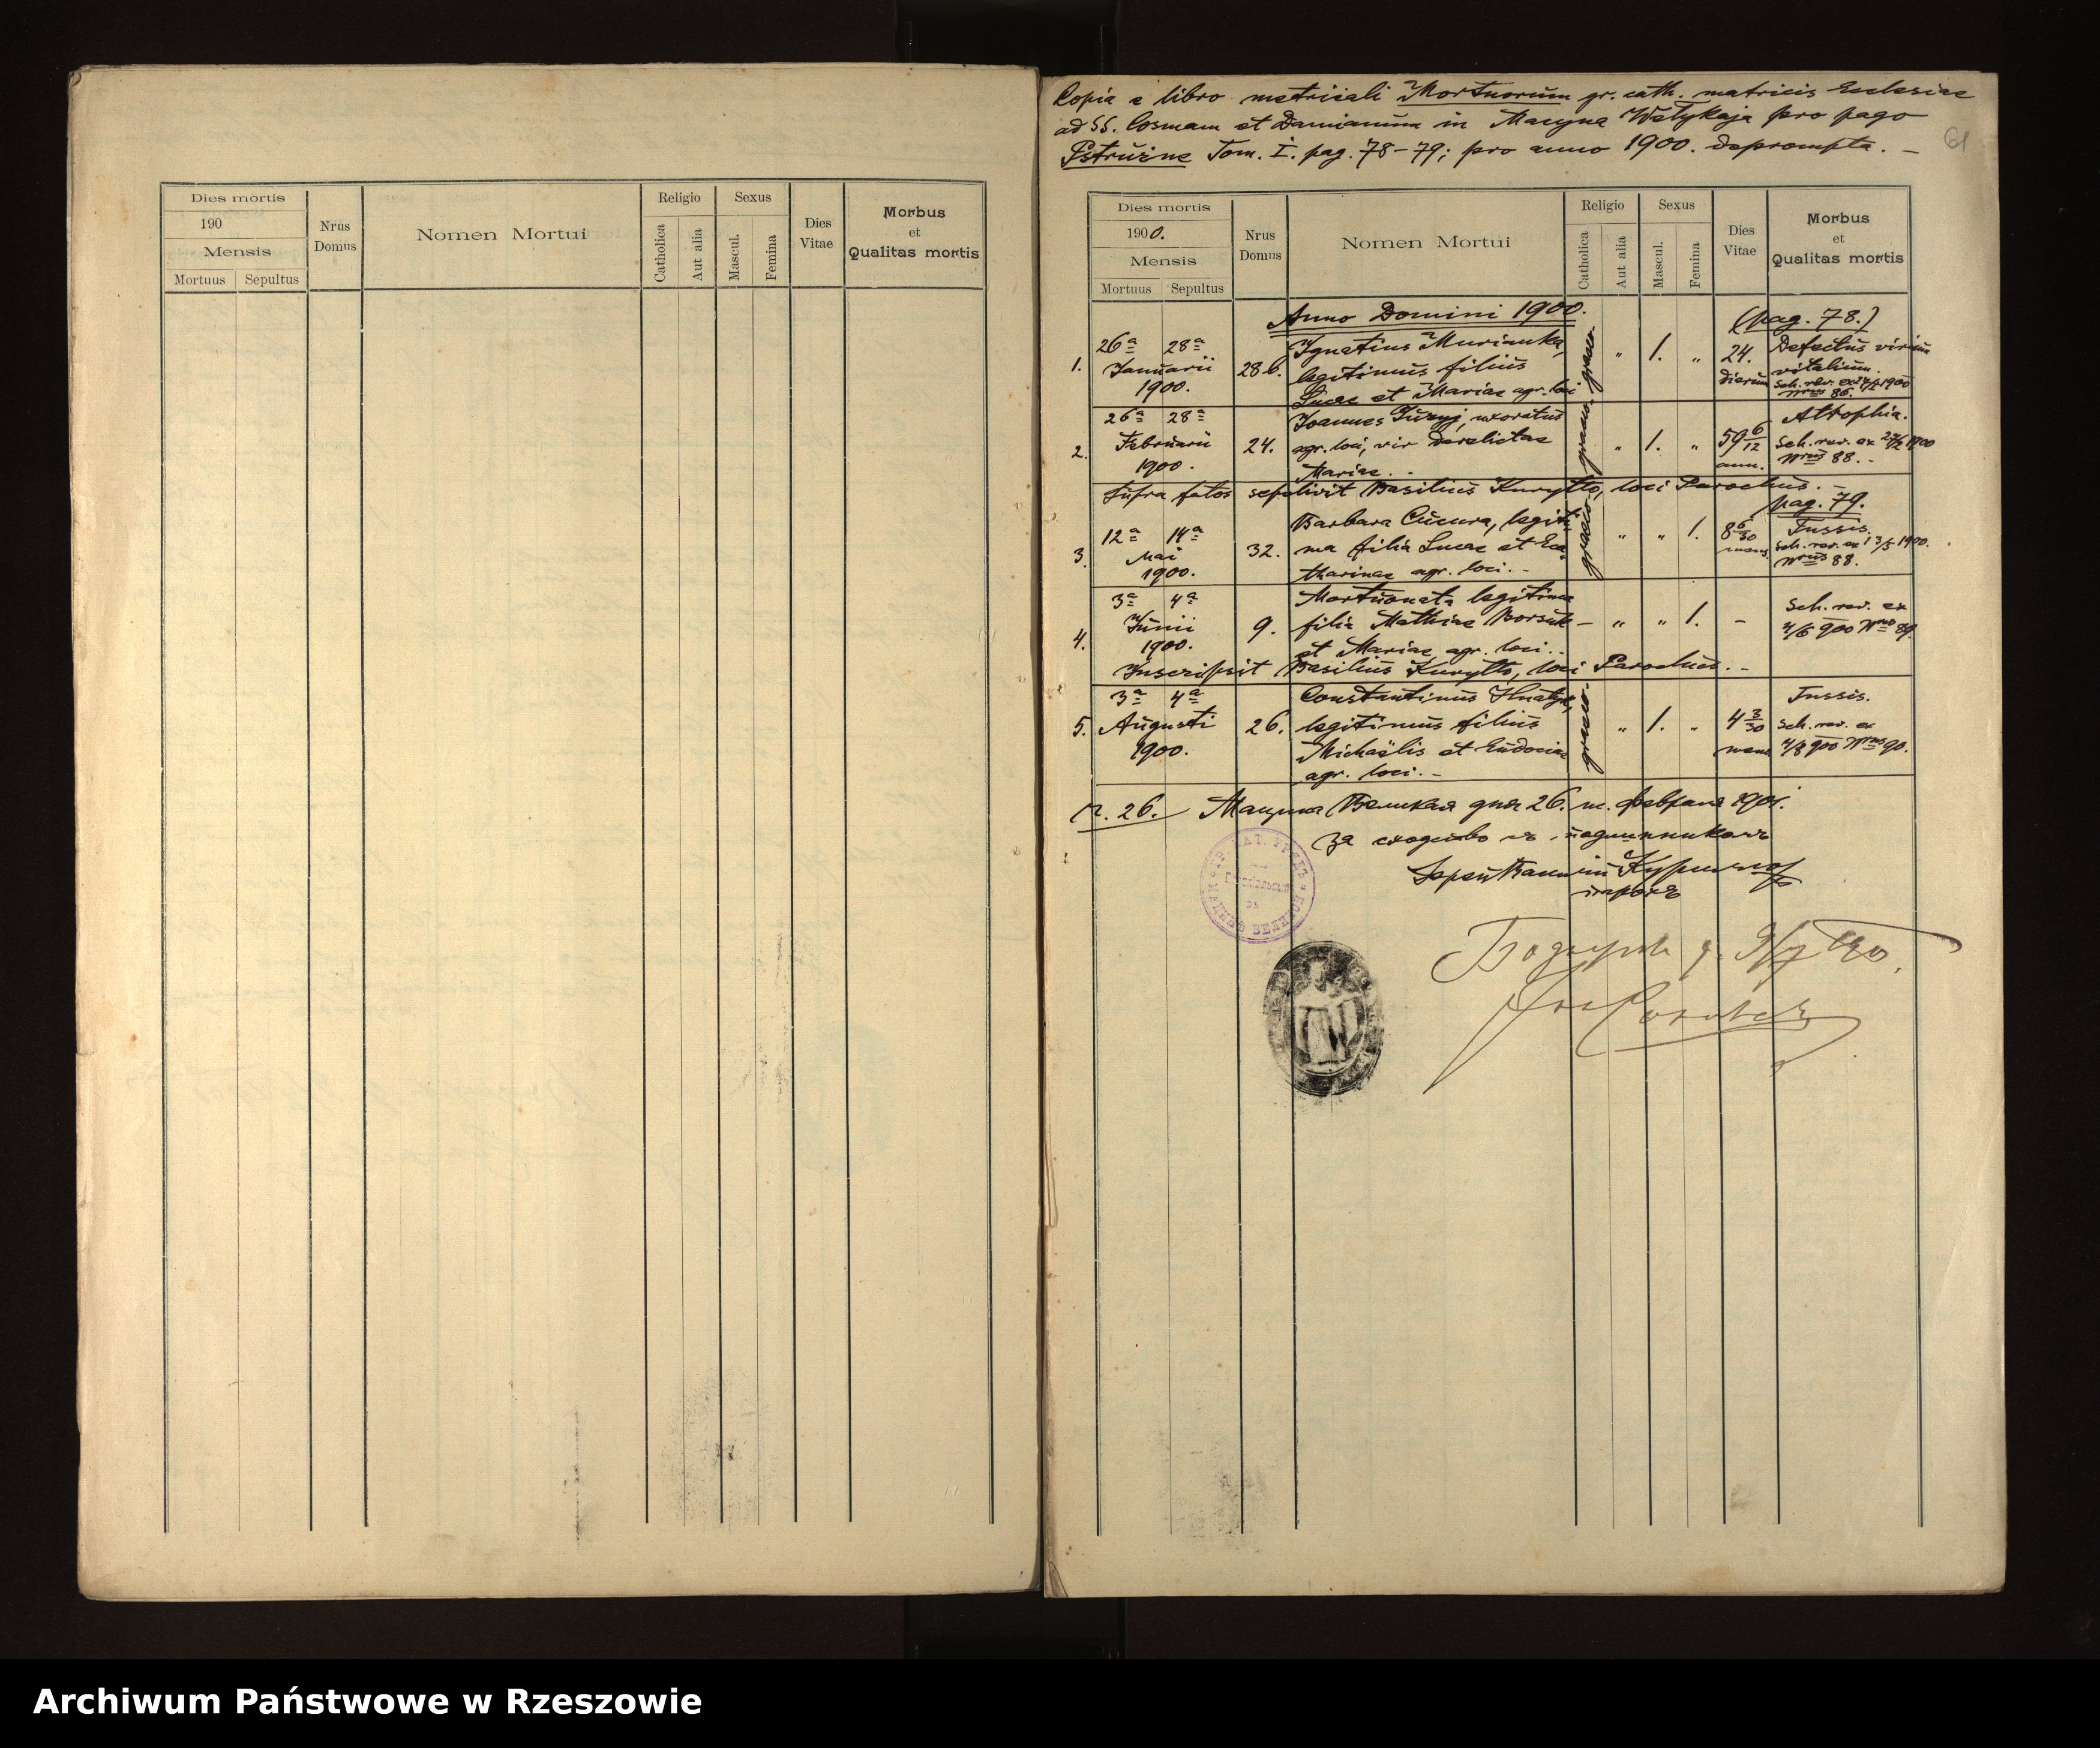 Dies mortis
190
Mensis
Mortuus Sepultus
Nrus
Domus
Nomen Mortui
Religio
Catholica
Aut alia
Sexus
Mascul.
Femina
Dies
Vitae
Morbus
et
Qualitas mortis
Copia e libro metricali Mortuorum gr. cath. matricis Ecclesiae
ad SS. Cosmam et Damianum in Macyna Wełykaja pro pago
Pstrużne Tom. I. pag. 78-79; pro anno 1900. deprompta. -
61
Dies mortis
1900.
Mensis
Mortuus Sepultus
Nrus
Domus
Nomen Mortui
Religio
Catholica
Aut alia
Sexus
Mascul.
Femina
Dies
Vitae
Morbus
et
Qualitas mortis
Anno Domini 1900. (pag. 78.)
1. 26ª 28ª
Januarii
1900.
286.
Ignatius Murianka,
legitimus filius
Lucae et Mariae agr. loci
graeco-
" 1. "
24.
dierum
Defectus virium
vitalium.
Nrus 86.
2. 26ª 28ª
Februarii
1900.
24.
Joannes uxoratus
agr. loci, vir derelictae
Mariae. -
graeco-
" 1. "
59 6/12
ann.
Atrophia.
Sch. rev. ex 27/2 1900
Nrus 88. -
Supra fatos sepelivit Basilius Kuryłło, loci Parochus. -
pag. 79.
3. 12ª 14ª
Mai
1900.
32.
Barbara Cucura, legiti-
ma filia Lucae et Eca-
tharinae agr. loci. -
graeco-
" " 1.
8 5/30
mens.
Tussis.
Sch. rev. ex 13/5 1900.
Nrus 88.
4. 3ª 4ª
Junii
1900.
9.
Mortuonata legitima
filia Mathiae Borsuk
et Mariae agr. loci. -
- " " 1. -
Sch. rev. ex
4/6 900 Nro 89.
Inscripsit Basilius Kuryłło, loci Parochus. -
5. 3ª 4ª
Augusti
1900.
26.
Constantinus Hnatyk,
legitimus filius
Michaëlis et Eudociae
agr. loci. -
graeco-
" 1. "
4 3/30
mens.
Tussis.
Sch. rev. ex
4/8 900 Nrus 90.
Ч. 26. Мацина Великая дня 26. м. Февраля 1901.
За сходство съ подлинникомъ
Іерей Василій Курилло
парохъ
Archiwum Państwowe w Rzeszowie